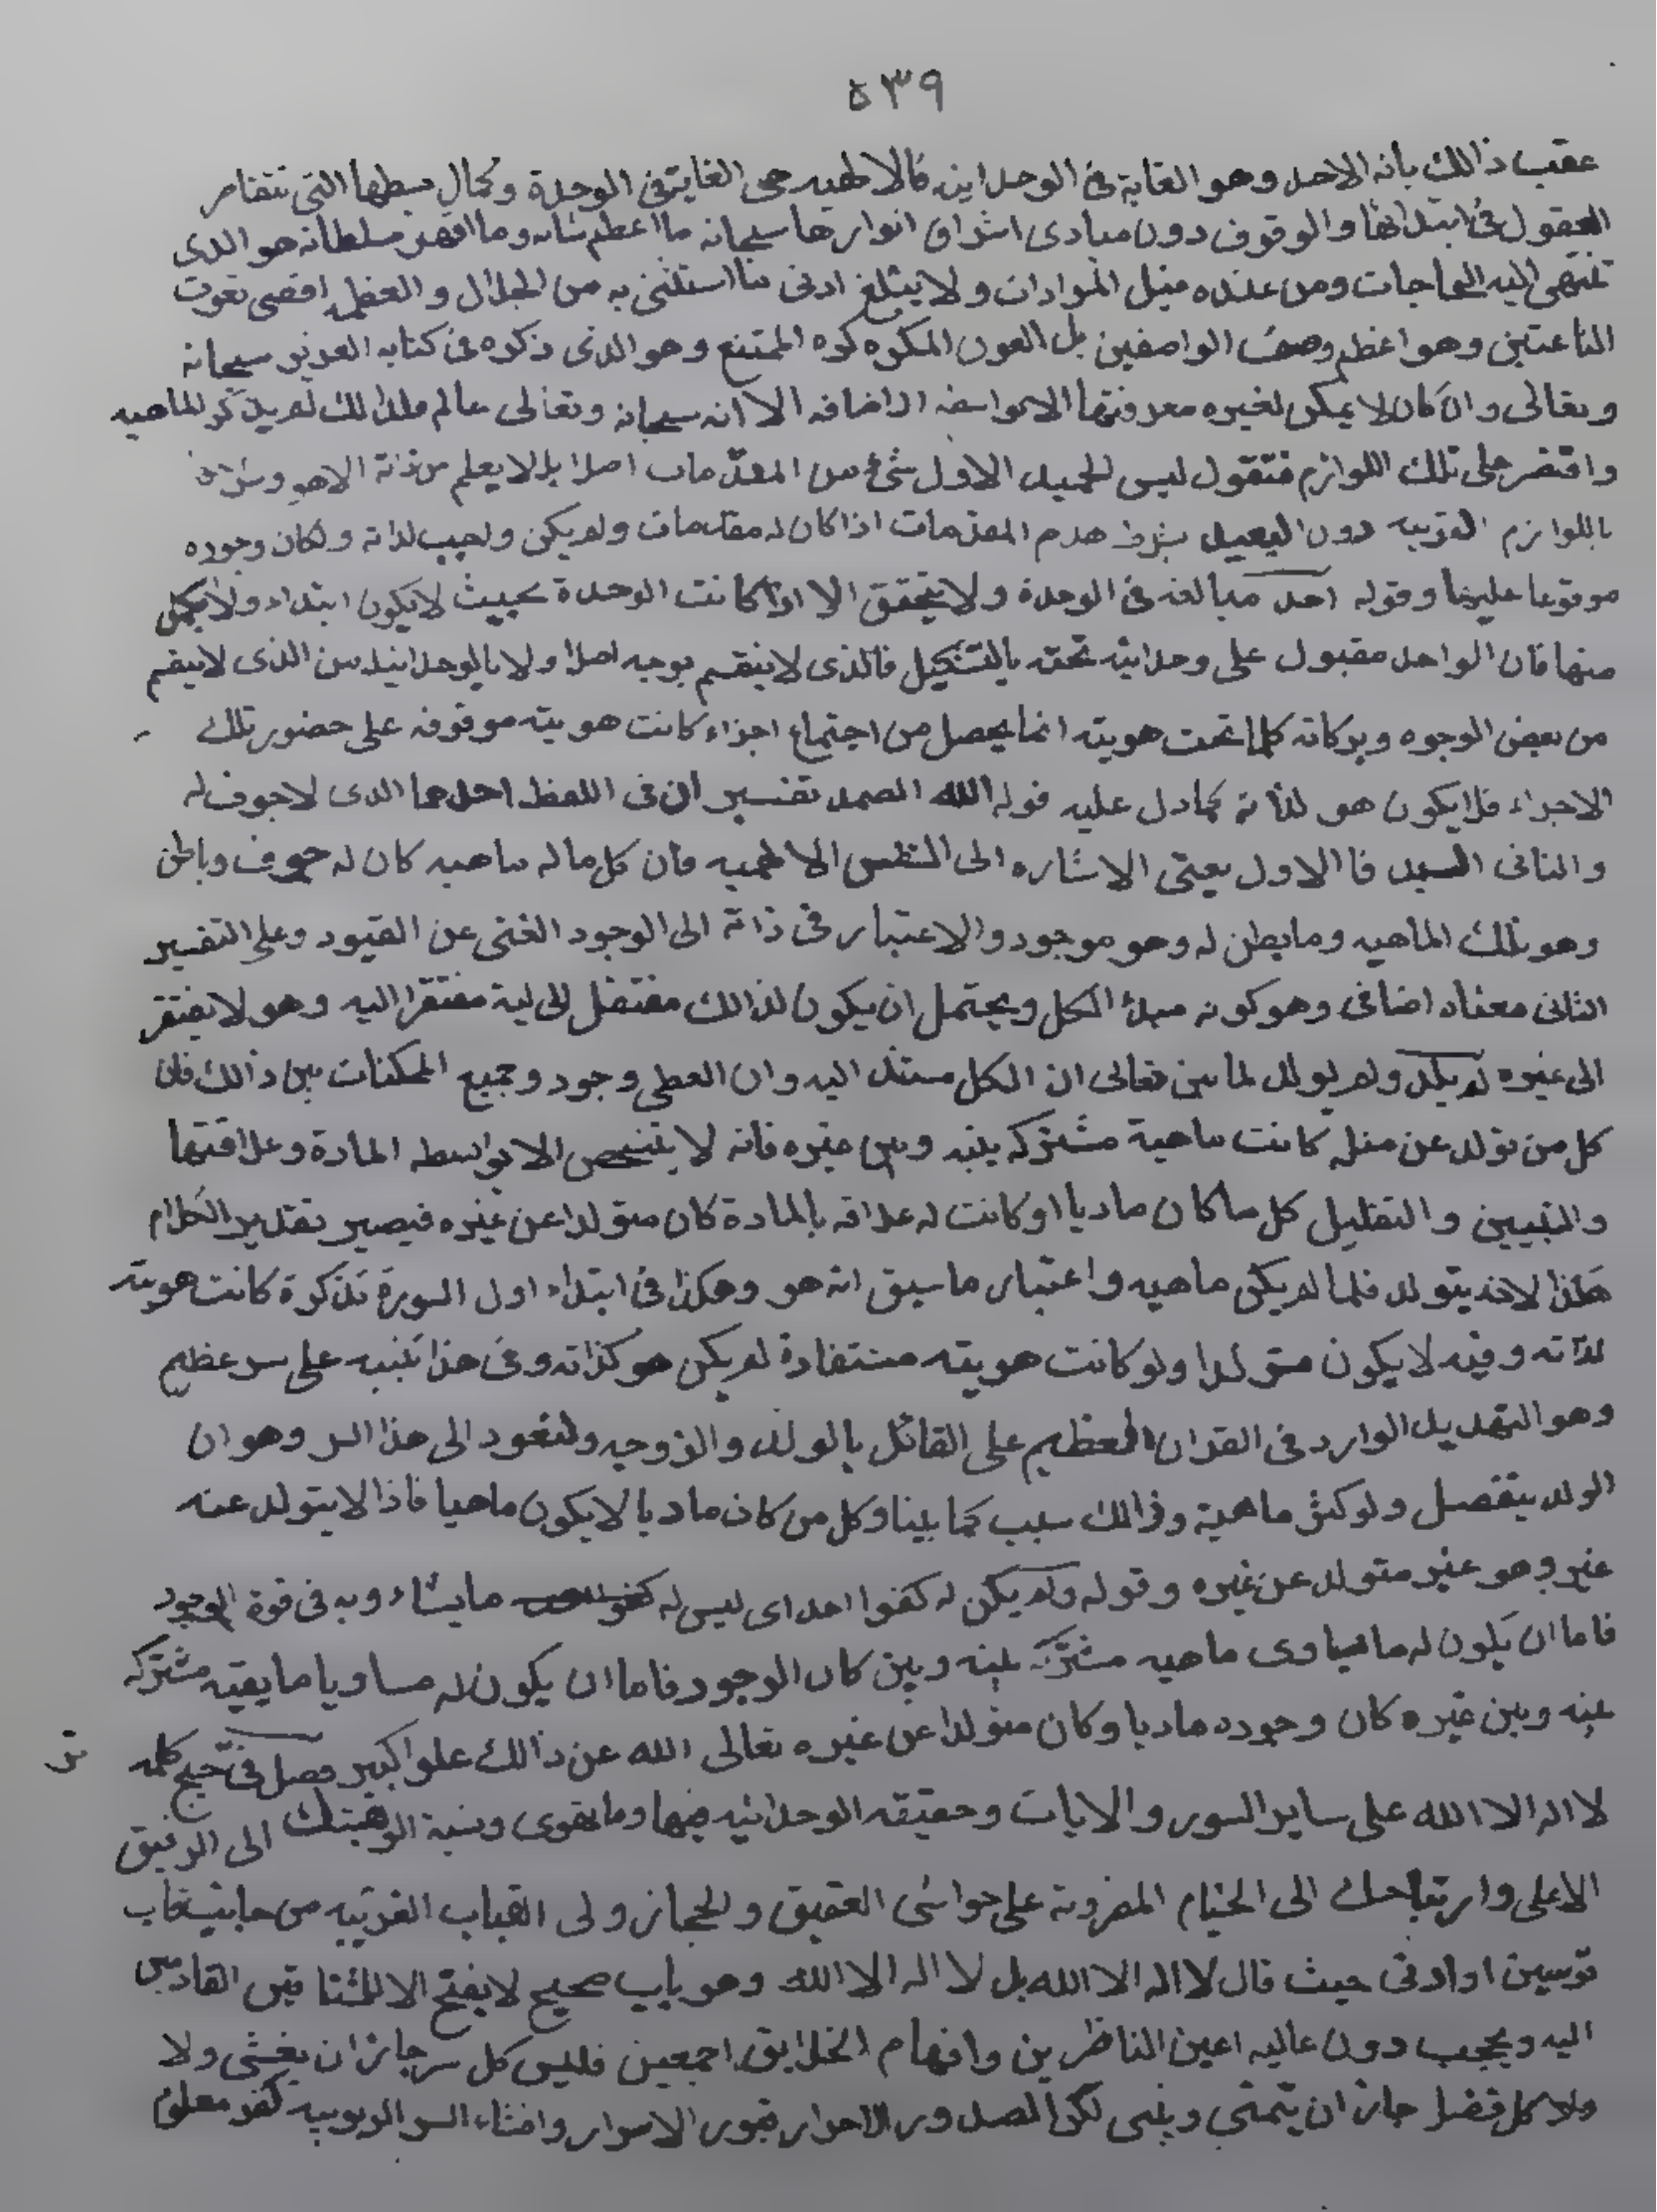 ٥٣٩
عقب ذالك بانه الاحد وهو الغاية فى الوحدانيه فالالاهيه هى الغاية فى الوحدة وكمال بسطها التى تتقاصر
العقول فى ابتدائها والوقوف دون مبادى اشراق انوارها سبحانه ما اعظم شانه وما اقهر سلطانه هو الذى
تنتهى اليه الحاجات ومن عنده منيل المرادات ولا يبلغ ادنى ما استثنى به من الجلال والعظمه اقصى نعوت
الناعتين وهو اعظم وصف الواصفين بل العون المكروه كره الممتنع وهو الذى ذكره فى كتابه العزيز سبحانه
وتعالى وان كان لا يمكن لغيره معرفتها الا بواسطه الاضافه الا انه سبحانه وتعالى عالم فلذلك لم يذكر الماهيه
واقتصر على تلك اللوازم فنقول ليس للجميد الاول شئ من المقدمات اصلا بل لا يعلم من ذاته الا هو وشرف
باللوازم القريبه دون البعيد بشرط هدم المقدمات اذا كان له مقدمات ولم يكن واجب لذاته ولكان وجوده
موقوفا عليها وقوله احد مبالغه فى الوحدة ولا يتحقق الا اذا كانت الوحدة بحيث لا يكون ابتداء ولا يكمل
منها فان الواحد مقبول على وحدانيته تحته بالتشكيل فالذى لا ينقسم بوجه اصلا ولا بالوحدانيه من الذى لا ينقسم
من بعض الوجوه وبركاته كلما تحت هويته انما يحصل من اجتماع اجزاء كانت هويته موقوفه على حضور تلك
الاجزاء فلا يكون هو لذاته كما دل عليه قوله الله الصمد تفسير ان فى اللفظ احدهما الذى لا جوف له
والثانى السيد فا الاول يعنى الاشاره الى النفس الالاهيه فان كل ما له ماهيه كان له جوف وباطن
وهو تلك الماهيه وما بطن له وهو موجود والاعتبار فى ذاته الى الوجود الغنى عن القيود وعلى التفسير
الثانى معناه اضافى وهو كونه مبدأ الكل ويحتمل ان يكون لذالك مفتقل الى لية مفتقرا اليه وهو لا يفتقر
الى غيره لم يلد ولم يولد لما بين تعالى ان الكل مستند اليه وان العطى وجود وجميع الممكنات بين ذالك فان
كل من تولد عن مثله كانت ماهية مشتركه بينه وبين غيره فانه لا يتشخص الا بواسطه المادة وعلاقتها
والتبيين والتقليل كل ما كان ماديا او كانت له علاقه بالمادة كان متولدا عن غيره فيصير تقدير الكلام
هكذا لانه يتولد فلما لم يكن ماهيه واعتبار ما سبق انه هو وهكذا فى ابتداء اول السورة تذكرة كانت هويته
لذاته وفيه لا يكون متولدا ولو كانت هويته مستفادة لم يكن هو كذاته وفى هذا تنبيه على سر عظيم
وهو التهديد الوارد فى القران العظيم على القائل بالولد والزوجيه ولنعود الى هذا السر وهو ان
الولد ينفصل ولو كثر ماهية وذالك سبب كما بينا وكل من كان ماديا لا يكون ماهيا فاذا لا يتولد عنه
غير وهو غير متولد عن غيره وقوله ولم يكن له كفوا احد اى ليس له ما يشاء وبه فى قوة الوجود
فاما ان يكون له ما يساوى ماهيه مشتركة بينه وبين كان الوجود فاما ان يكون له مساويا ما بقيته مشتركه
عنه وبين غيره كان وجوده ماديا وكان متولدا عن غيره تعالى الله عن ذالك علوا كبير فصل فى كلمه
لا اله الا الله على ساير السور والايات وحقيقه الوحدانيه فيها وما تهوى ونسبة الى الرفيق
الاعلى وارتياحك الى الخيام المضروبة على حواشى العقيق والحجاز ولى القباب القريبه من جانب قاب
قوسين او ادنى حيث قال لا اله الا الله بل لا اله الا الله وهو باب صحيح لا يفتح الا للشتاقين القادمين
اليه ويحجب دون عاليه اعين الناظرين وافهام الخلايق اجمعين فليس كل سر جائز ان يفشى ولا
ولا كل فضل جائز ان يتمنى وينسى لكن الصدور الاحرار قبور الاسرار وافشاء السر الربوبيه كفر معلوم